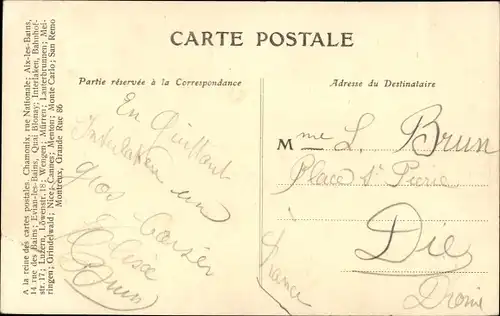 CARTE POSTALE
Partie réservée à la Correspondance
Adresse du Destinataire
A la reine des cartes postales. Chamonix, rue Nationale; Aix-les-Bains,
14 rue des Bains; Evian-les-Bains, Quai Blonay; Interlaken, Bahnhof-
str. 17; Luzern, Löwenstr. 18; Wengen; Mürren; Lauterbrunnen; Mei-
ringen; Grindelwald; Nice; Cannes; Menton; Monte Carlo; San Remo
Montreux, Grande Rue 86
En Quittant
Interlaken un
gros baiser
Mme L. Brun
Place St Pierre
Die
Drome
France